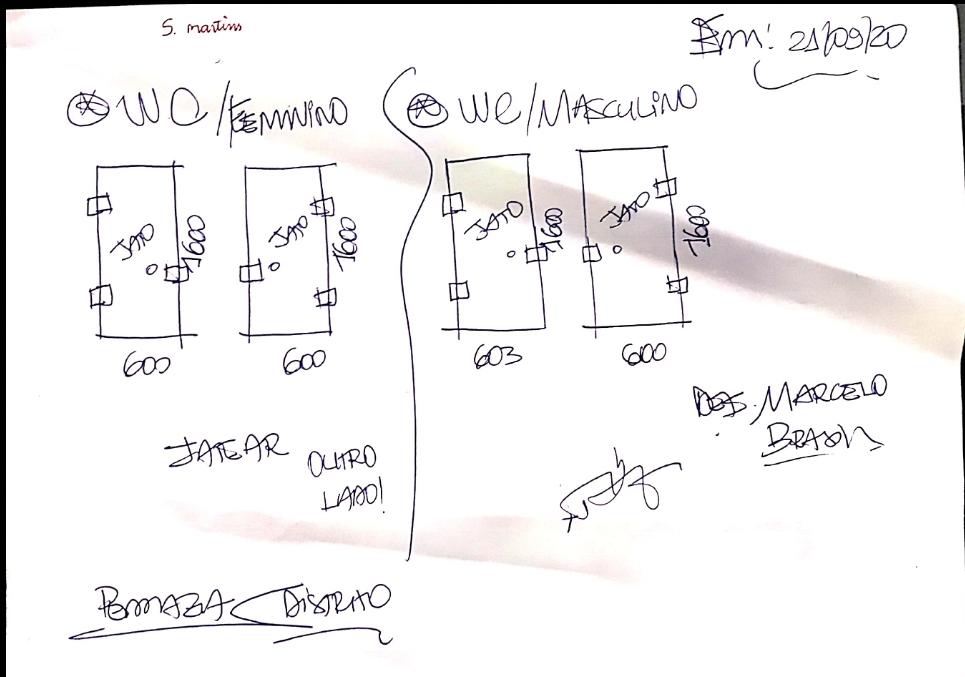 S. martins
Em: 21/09/20
WC/FEMININO
WC/MASCULINO
JATO
1600
JATO
1600
JATO
1600
JATO
1600
600
600
603
600
DES. MARCELO
JATEAR OUTRO
LADO!
DISTRITO